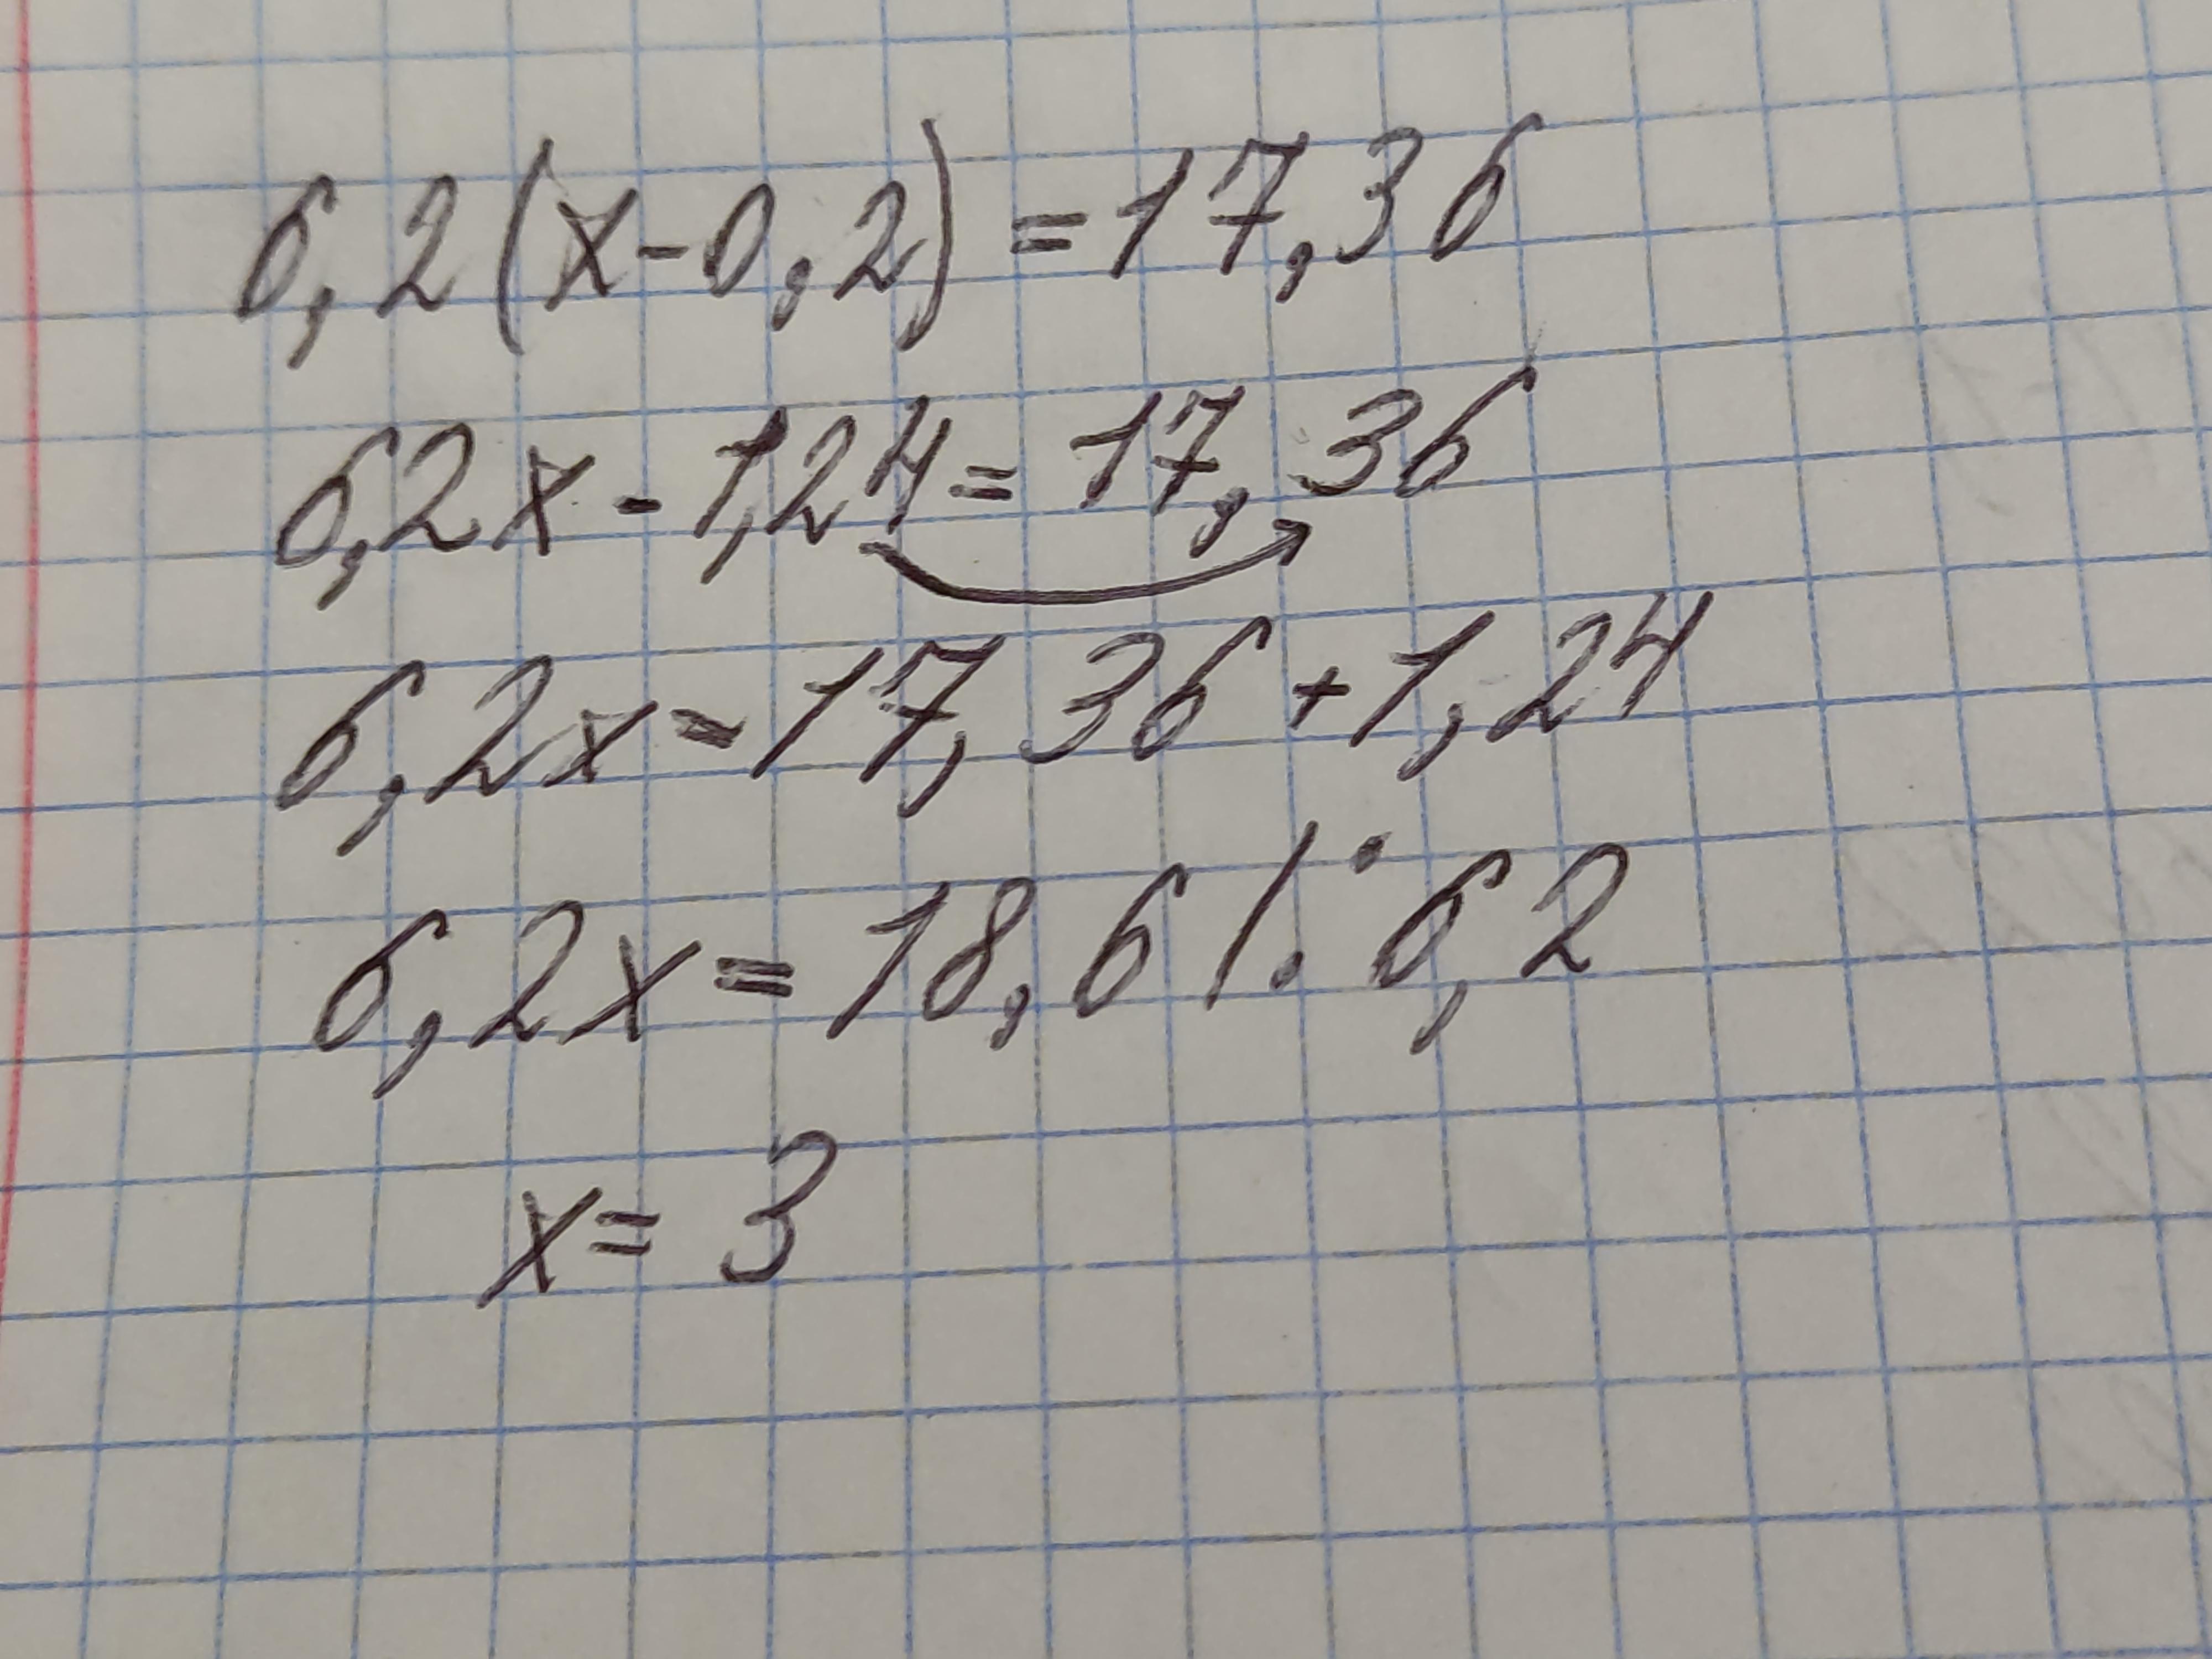 6,2(x-0,2)=17,36
6,2x-1,24=17,36
6,2x=17,36+1,24
6,2x=18,6 |:6,2
x=3